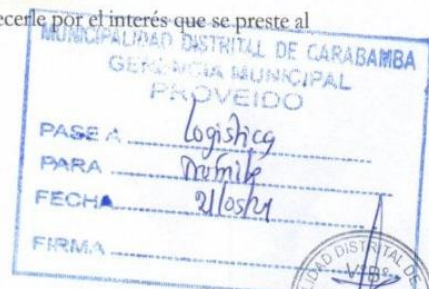 ecerle por el interés que se preste al
MUNICIPALIDAD DISTRITAL DE CARABAMBA
GERENCIA MUNICIPAL
PROVEIDO
PASE A Logistica
PARA
FECHA 21/05/21
FIRMA
DAD DISTRITAL DE
V°B°